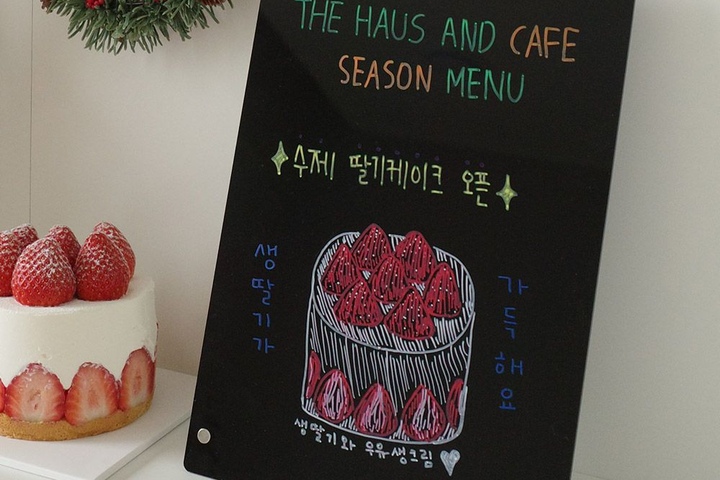 THE HAUS AND CAFE
SEASON MENU
수제 딸기케이크 오픈
생딸기가
가득해요
생딸기와 우유생크림